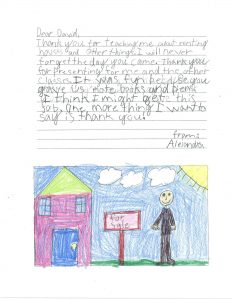 Dear David,
Thank you for teaching me about renting
houses and other things. I will never
forget the day you came. Thank you
for presenting for me and the other
classes. It was fun because you
gave us note books and pens.
I think I might get this
job. One more thing I want to
say is thank you!
from:
Alejandra
for
Sale